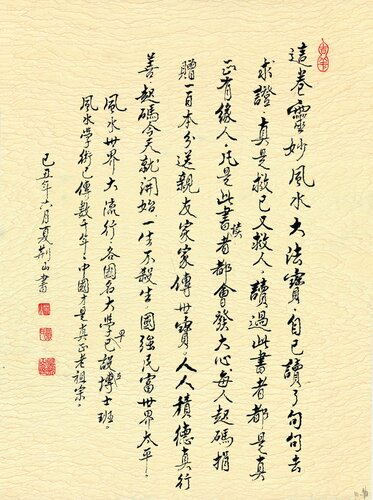 這卷靈妙風水大法寶，自己讀了句句去
求證，真是救己又救人，讀過此書者都是真
正有緣人，凡是讀此書者都會發大心每人起碼捐
贈一百本分送親友家家傳世寶，人人積德真行
善，起碼今天就開始，一生不殺生，國強民富世界太平。
風水世界大流行，各國名大學早已設博士班。
風水學術已傳數千年，中國才是真正老祖宗。
己丑年六月夏荆山書